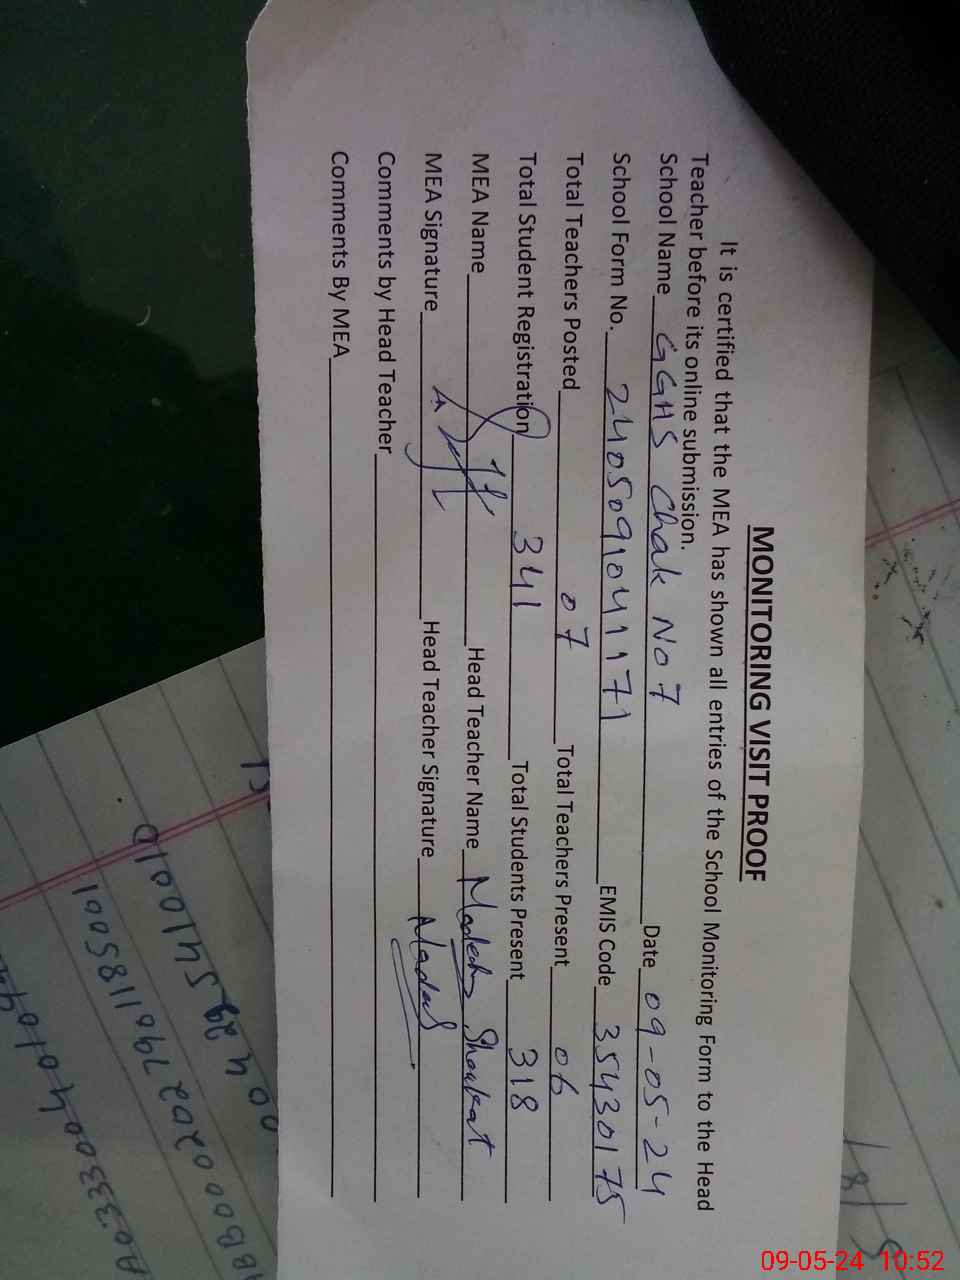 MONITORING VISIT PROOF
It is certified that the MEA has shown all entries of the School Monitoring Form to the Head
Teacher before its online submission.
School Name GGHS Chak No 7 Date 09-05-24
School Form No. 2405091041171 EMIS Code 35430175
Total Teachers Posted 07 Total Teachers Present 06
Total Student Registration 341 Total Students Present 318
MEA Name Head Teacher Name Shoukat
MEA Signature Head Teacher Signature
Comments by Head Teacher
Comments By MEA
09-05-24 10:52